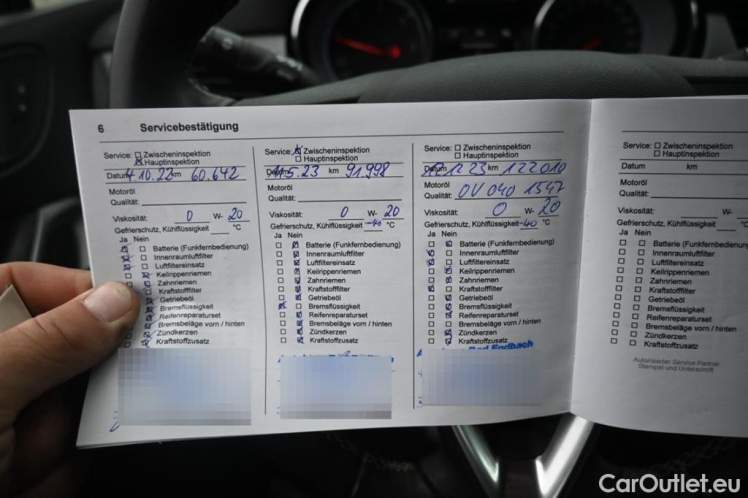 6 Servicebestätigung
Service: Zwischeninspektion
Hauptinspektion
Datum 4.10.22 km 60.642
Motoröl
Qualität:
Viskosität: 0 W- 20
Gefrierschutz, Kühlflüssigkeit °C
Ja Nein
Batterie (Funkfernbedienung)
Innenraumluftfilter
Luftfiltereinsatz
Keilrippenriemen
Zahnriemen
Kraftstofffilter
Getriebeöl
Bremsflüssigkeit
Reifenreparaturset
Bremsbeläge vorn / hinten
Zündkerzen
Kraftstoffzusatz
Service: Zwischeninspektion
Hauptinspektion
Datum .5.23 km 91.998
Motoröl
Qualität:
Viskosität: 0 W- 20
Gefrierschutz, Kühlflüssigkeit -40 °C
Ja Nein
Batterie (Funkfernbedienung)
Innenraumluftfilter
Luftfiltereinsatz
Keilrippenriemen
Zahnriemen
Kraftstofffilter
Getriebeöl
Bremsflüssigkeit
Reifenreparaturset
Bremsbeläge vorn / hinten
Zündkerzen
Kraftstoffzusatz
Service: Zwischeninspektion
Hauptinspektion
Datum 12 23 km 122.010
Motoröl
Qualität: OV 040 1547
Viskosität: 0 W- 20
Gefrierschutz, Kühlflüssigkeit -40 °C
Ja Nein
Batterie (Funkfernbedienung)
Innenraumluftfilter
Luftfiltereinsatz
Keilrippenriemen
Zahnriemen
Kraftstofffilter
Getriebeöl
Bremsflüssigkeit
Reifenreparaturset
Bremsbeläge vorn / hinten
Zündkerzen
Kraftstoffzusatz
Bad Endbach
Service: Zwischeninspektion
Hauptinspektion
Datum km
Motoröl
Qualität:
Viskosität: W-
Gefrierschutz, Kühlflüssigkeit
Ja Nein
Batterie (Funkfernbed
Innenraumluftfilter
Luftfiltereinsatz
Keilrippenriemen
Zahnriemen
Kraftstofffilter
Getriebeöl
Bremsflüssigkeit
Reifenreparaturset
Bremsbeläge vorn / h
Zündkerzen
Kraftstoffzusatz
Autorisierter Service Partner
Stempel und Unterschrift
CarOutlet.eu